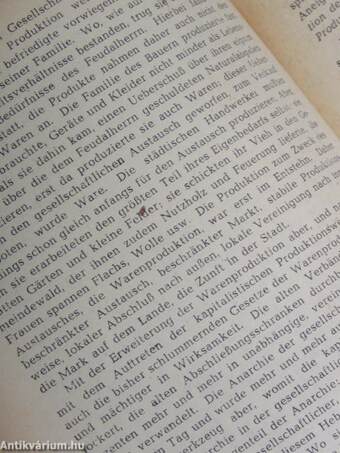 Gesellschaft
Produktion wesentlich
befriedigte vorwiegend
seiner Familie. Wo, wie auf
tsverhältnisse bestanden, trug sie
Bedürfnisse des Feudalherrn. Hierbei fand
statt, die Produkte nahmen daher auch nicht den
Waren an. Die Familie des Bauern produzierte fast
brauchte, Geräte und Kleider nicht minder als Lebensmittel
als sie dahin kam, einen Ueberschuß über ihren eigenen
über die dem Feudalherrn geschuldeten Naturalabgaben
zieren, erst da produzierte sie auch Waren; dieser
in den gesellschaftlichen Austausch geworfen, zum Verkauf
boten, wurde Ware. Die städtischen Handwerker mußten
dings schon gleich anfangs für den Austausch produzieren. Aber
sie erarbeiteten den größten Teil ihres Eigenbedarfs selbst; sie
hatten Gärten und kleine Felder; sie schickten ihr Vieh in den
meindewald, der ihnen zudem Nutzholz und Feuerung lieferte, die
Frauen spannen Flachs, Wolle usw. Die Produktion zum Zweck des
Austausches, die Warenproduktion, war erst im Entstehen. Daher
beschränkter Austausch, beschränkter Markt, stabile Produktions-
weise, lokaler Abschluß nach außen, lokale Vereinigung nach
die Mark auf dem Lande, die Zunft in der Stadt.
Mit der Erweiterung der Warenproduktion aber, und
mit dem Auftreten der kapitalistischen Produktionsweise
auch die bisher schlummernden Gesetze der Warenproduktion
und mächtiger in Wirksamkeit. Die alten Verbände
die alten Abschließungsschranken durchbrochen
mehr und mehr in unabhängige, vereinzelte
verwandelt. Die Anarchie der gesellschaftlichen
Tag und wurde mehr und mehr auf
werkzeug aber, womit die
Anarchie in der gesellschaftlichen
Anarchie:
gesellschaftlicher
diesem